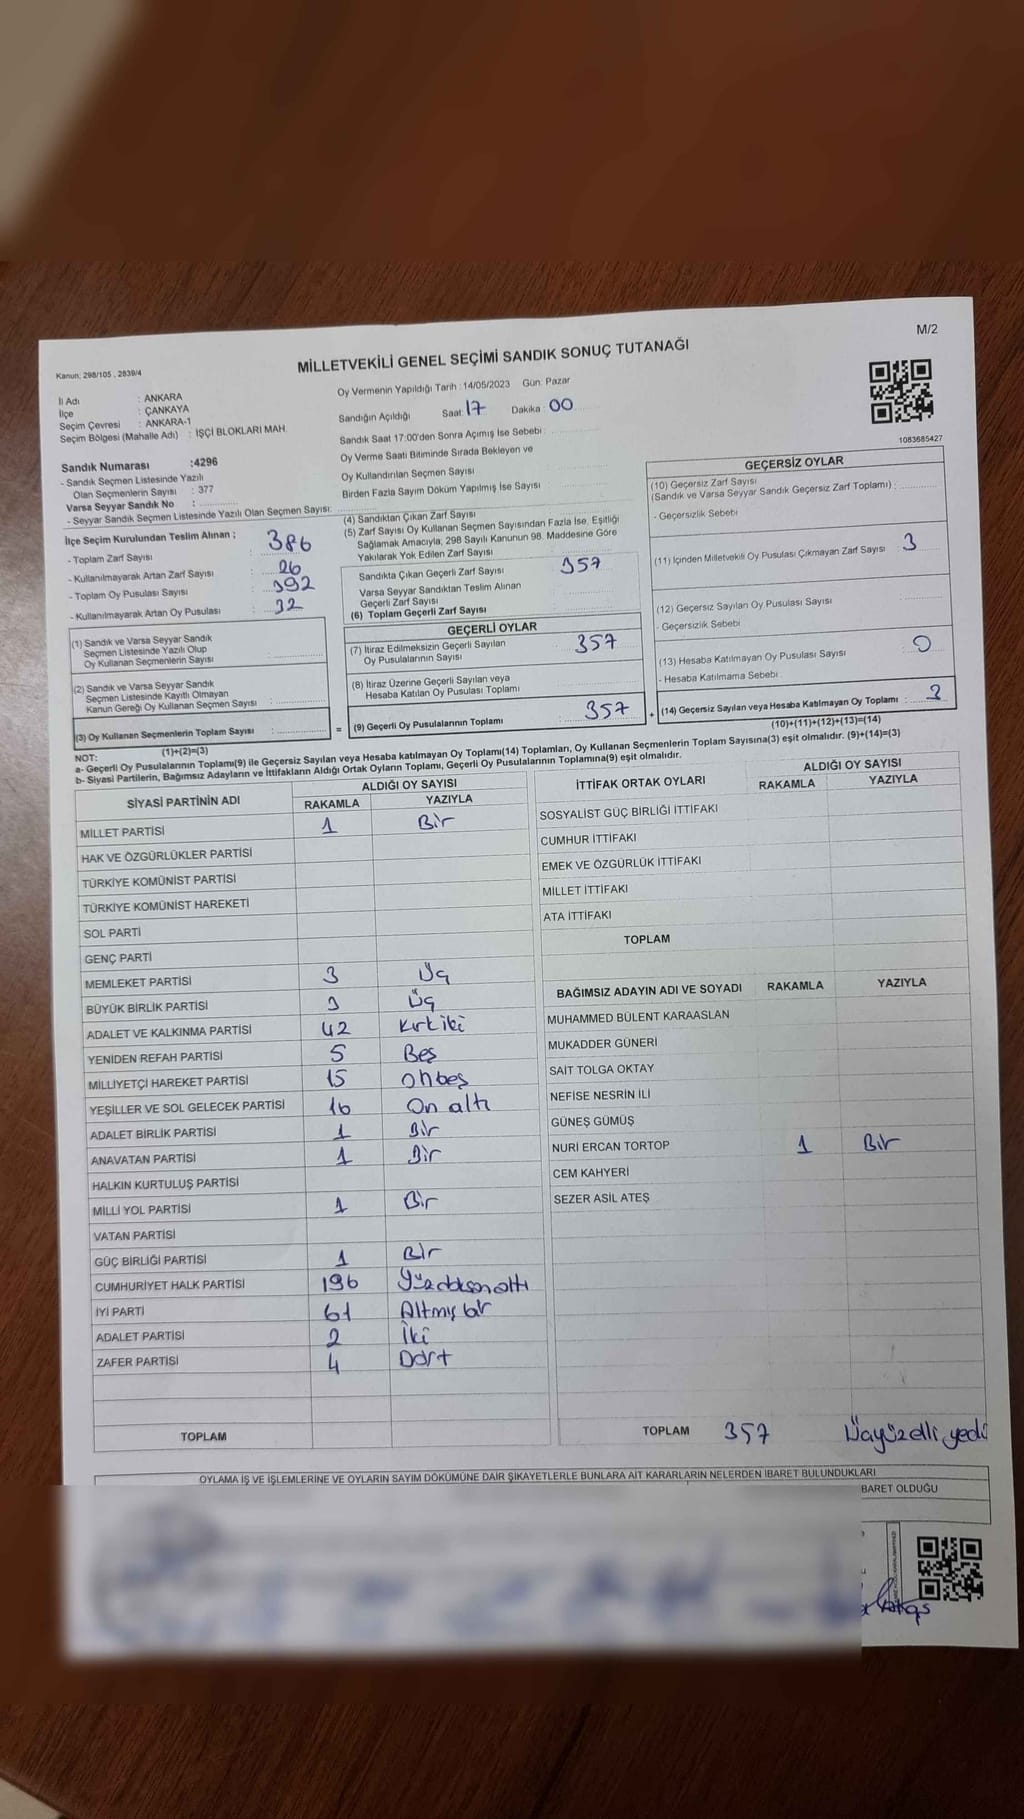 M/2
MİLLETVEKİLİ GENEL SEÇİMİ SANDIK SONUÇ TUTANAĞI
Kanun; 298/105 , 2839/4
İl Adı : ANKARA
İlçe : ÇANKAYA
Seçim Çevresi : ANKARA-1
Seçim Bölgesi (Mahalle Adı) : İŞÇİ BLOKLARI MAH.
Oy Vermenin Yapıldığı Tarih : 14/05/2023 Gün: Pazar
Sandığın Açıldığı Saat: 17 Dakika : 00
Sandık Saat 17:00'den Sonra Açımış İse Sebebi :
Oy Verme Saati Bitiminde Sırada Bekleyen ve
Oy Kullandırılan Seçmen Sayısı
Birden Fazla Sayım Döküm Yapılmış İse Sayısı
1083685427
Sandık Numarası :4296
- Sandık Seçmen Listesinde Yazılı
Olan Seçmenlerin Sayısı : 377
Varsa Seyyar Sandık No :
- Seyyar Sandık Seçmen Listesinde Yazılı Olan Seçmen Sayısı:
İlçe Seçim Kurulundan Teslim Alınan ;
- Toplam Zarf Sayısı : 386
- Kullanılmayarak Artan Zarf Sayısı : 26
- Toplam Oy Pusulası Sayısı : 392
- Kullanılmayarak Artan Oy Pusulası : 32
(1) Sandık ve Varsa Seyyar Sandık
Seçmen Listesinde Yazılı Olup
Oy Kullanan Seçmenlerin Sayısı :
(2) Sandık ve Varsa Seyyar Sandık
Seçmen Listesinde Kayıtlı Olmayan
Kanun Gereği Oy Kullanan Seçmen Sayısı :
(3) Oy Kullanan Seçmenlerin Toplam Sayısı :
(1)+(2)=(3)
(4) Sandıktan Çıkan Zarf Sayısı
(5) Zarf Sayısı Oy Kullanan Seçmen Sayısından Fazla İse, Eşitliği
Sağlamak Amacıyla; 298 Sayılı Kanunun 98. Maddesine Göre
Yakılarak Yok Edilen Zarf Sayısı
Sandıkta Çıkan Geçerli Zarf Sayısı 357
Varsa Seyyar Sandıktan Teslim Alınan
Geçerli Zarf Sayısı
(6) Toplam Geçerli Zarf Sayısı
GEÇERLİ OYLAR
(7) İtiraz Edilmeksizin Geçerli Sayılan
Oy Pusulalarının Sayısı 357
(8) İtiraz Üzerine Geçerli Sayılan veya
Hesaba Katılan Oy Pusulası Toplamı
= (9) Geçerli Oy Pusulalarının Toplamı : 357 +
GEÇERSİZ OYLAR
(10) Geçersiz Zarf Sayısı
(Sandık ve Varsa Seyyar Sandık Geçersiz Zarf Toplamı) :
- Geçersizlik Sebebi
(11) İçinden Milletvekili Oy Pusulası Çıkmayan Zarf Sayısı : 3
(12) Geçersiz Sayılan Oy Pusulası Sayısı
- Geçersizlik Sebebi
(13) Hesaba Katılmayan Oy Pusulası Sayısı : 0
- Hesaba Katılmama Sebebi
(14) Geçersiz Sayılan veya Hesaba Katılmayan Oy Toplamı : 3
(10)+(11)+(12)+(13)=(14)
NOT:
a- Geçerli Oy Pusulalarının Toplamı(9) ile Geçersiz Sayılan veya Hesaba katılmayan Oy Toplamı(14) Toplamları, Oy Kullanan Seçmenlerin Toplam Sayısına(3) eşit olmalıdır. (9)+(14)=(3)
b- Siyasi Partilerin, Bağımsız Adayların ve İttifakların Aldığı Ortak Oyların Toplamı, Geçerli Oy Pusulalarının Toplamına(9) eşit olmalıdır.
SİYASİ PARTİNİN ADI ALDIĞI OY SAYISI
RAKAMLA YAZIYLA
MİLLET PARTİSİ 1 Bir
HAK VE ÖZGÜRLÜKLER PARTİSİ
TÜRKİYE KOMÜNİST PARTİSİ
TÜRKİYE KOMÜNİST HAREKETİ
SOL PARTİ
GENÇ PARTİ
MEMLEKET PARTİSİ 3 Üç
BÜYÜK BİRLİK PARTİSİ 3 Üç
ADALET VE KALKINMA PARTİSİ 42 Kırk iki
YENİDEN REFAH PARTİSİ 5 Beş
MİLLİYETÇİ HAREKET PARTİSİ 15 Onbeş
YEŞİLLER VE SOL GELECEK PARTİSİ 16 On altı
ADALET BİRLİK PARTİSİ 1 Bir
ANAVATAN PARTİSİ 1 Bir
HALKIN KURTULUŞ PARTİSİ
MİLLİ YOL PARTİSİ 1 Bir
VATAN PARTİSİ
GÜÇ BİRLİĞİ PARTİSİ 1 Bir
CUMHURİYET HALK PARTİSİ 196 Yüzdoksanaltı
İYİ PARTİ 61 Altmış bir
ADALET PARTİSİ 2 İki
ZAFER PARTİSİ 4 Dört
TOPLAM
İTTİFAK ORTAK OYLARI ALDIĞI OY SAYISI
RAKAMLA YAZIYLA
SOSYALİST GÜÇ BİRLİĞİ İTTİFAKI
CUMHUR İTTİFAKI
EMEK VE ÖZGÜRLÜK İTTİFAKI
MİLLET İTTİFAKI
ATA İTTİFAKI
TOPLAM
BAĞIMSIZ ADAYIN ADI VE SOYADI RAKAMLA YAZIYLA
MUHAMMED BÜLENT KARAASLAN
MUKADDER GÜNERİ
SAİT TOLGA OKTAY
NEFİSE NESRİN İLİ
GÜNEŞ GÜMÜŞ
NURİ ERCAN TORTOP 1 Bir
CEM KAHYERİ
SEZER ASİL ATEŞ
TOPLAM 357 Üçyüzelli yedi
OYLAMA İŞ VE İŞLEMLERİNE VE OYLARIN SAYIM DÖKÜMÜNE DAİR ŞİKAYETLERLE BUNLARA AİT KARARLARIN NELERDEN İBARET BULUNDUKLARI
BARET OLDUĞU